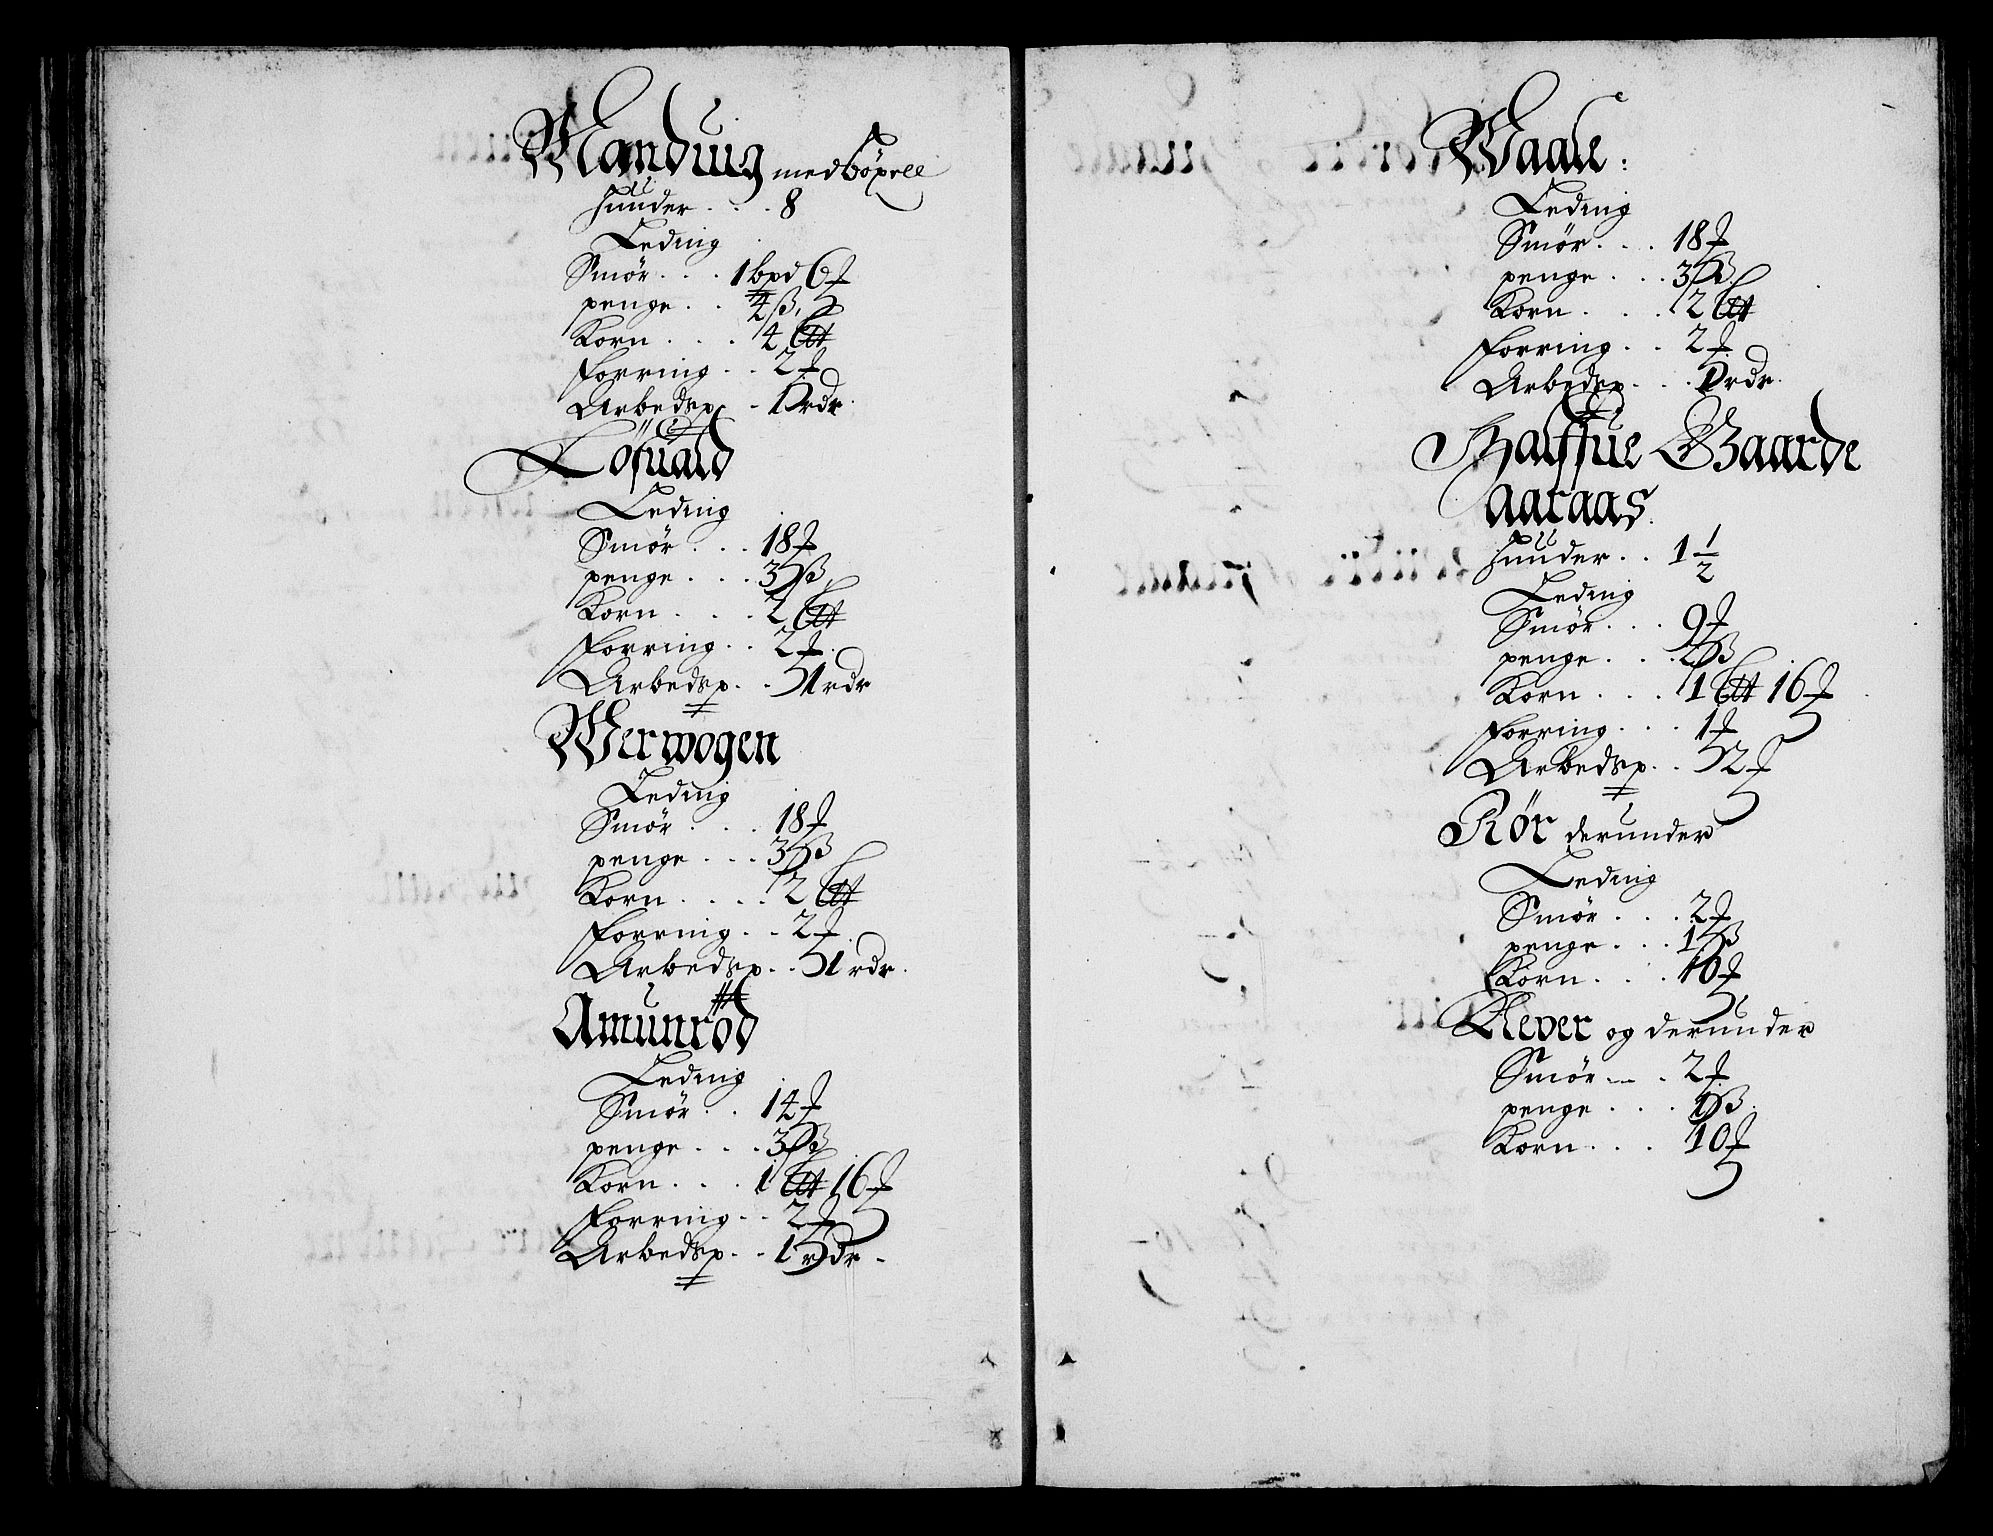 Manduig med böxell
huuder . . . 8
Leding
Smör . . . 1 bpd 6 ₰
penge . . 4 ß
Korn . . . . 4
forring . . 2 ₰
Arbedsp. . 1 rdr.
Löfuald
Leding
Smör . . . 18 ₰
penge . . . 3 ß
Korn . . . . 2
forring . . 2 ₰
Arbedsp. . 1 rdr
Werwogen
Leding
Smör . . . 18 ₰
penge . . . 3 ß
Korn . . . . 2
forring . . 2 ₰
Arbedsp. . 1 rdr.
Amunröd
Leding
Smör . . 14 ₰
penge . . . 3 ß
Korn . . . 1 16 ₰
forring . . 2 ₰
Arbedsp. . 1 rdr.
Leding
Smör . . . 18 ₰
penge . . . 3 ß
Korn . . . . 2
forring . . 2 ₰
Arbedsp. . . 1 rdr.
Halffue Gaarde
Aaraas.
huuder . . 1 1/2
Leding
Smör . . . 9 ₰
penge . . . 2 ß
Korn . . . 1 16 ₰
forring . . . 1 ₰
Arbedsp. . 2 ₰
Rör derunder
Leding
Smör . . . 2 ₰
penge . . . 1 ß
Korn . . . 10 ₰
og derunder
Smör . . . 2 ₰
penge . . . 1 ß.
Korn . . . 10 ₰